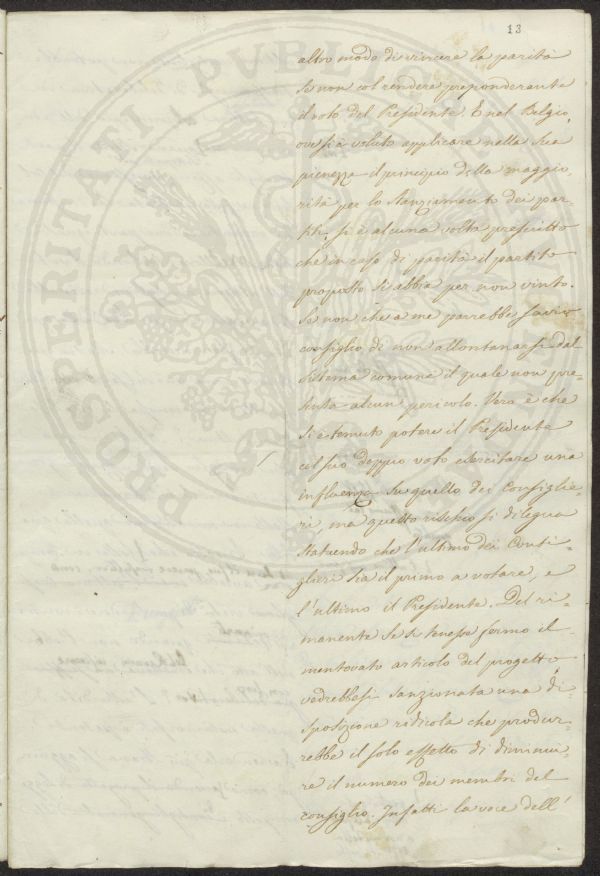 13
altro modo di vincere la parità
se non col rendere preponderante
il voto del Presidente. E nel Belgio,
ove si è voluto applicare nella sua
pienezza il principio della maggio,
rità per lo stanziamento dei par-
titi, si è alcuna volta prescritto
che in caso di parità il partito
proposto si abbia per non vinto.
Se non che a me parrebbe savio
consiglio di non allontanarsi dal
sistema comune il quale non pre-
senta alcun pericolo. Vero è che
si è temuto potere il Presidente
col suo doppio voto esercitare una
influenza su quello dei Consiglie-
ri, ma questo rischio si dilegua
statuendo che l'ultimo dei Consi-
glieri sia il primo a votare, e
l'ultimo il Presidente. Del ri-
manente se si tenesse fermo il
mentovato articolo del progetto,
vedrebbesi sanzionata una di-
sposizione ridicola che produr-
rebbe il solo effetto di diminui-
re il numero dei membri del
consiglio. Infatti la voce dell'
PROSPERITATI PUBLICAE